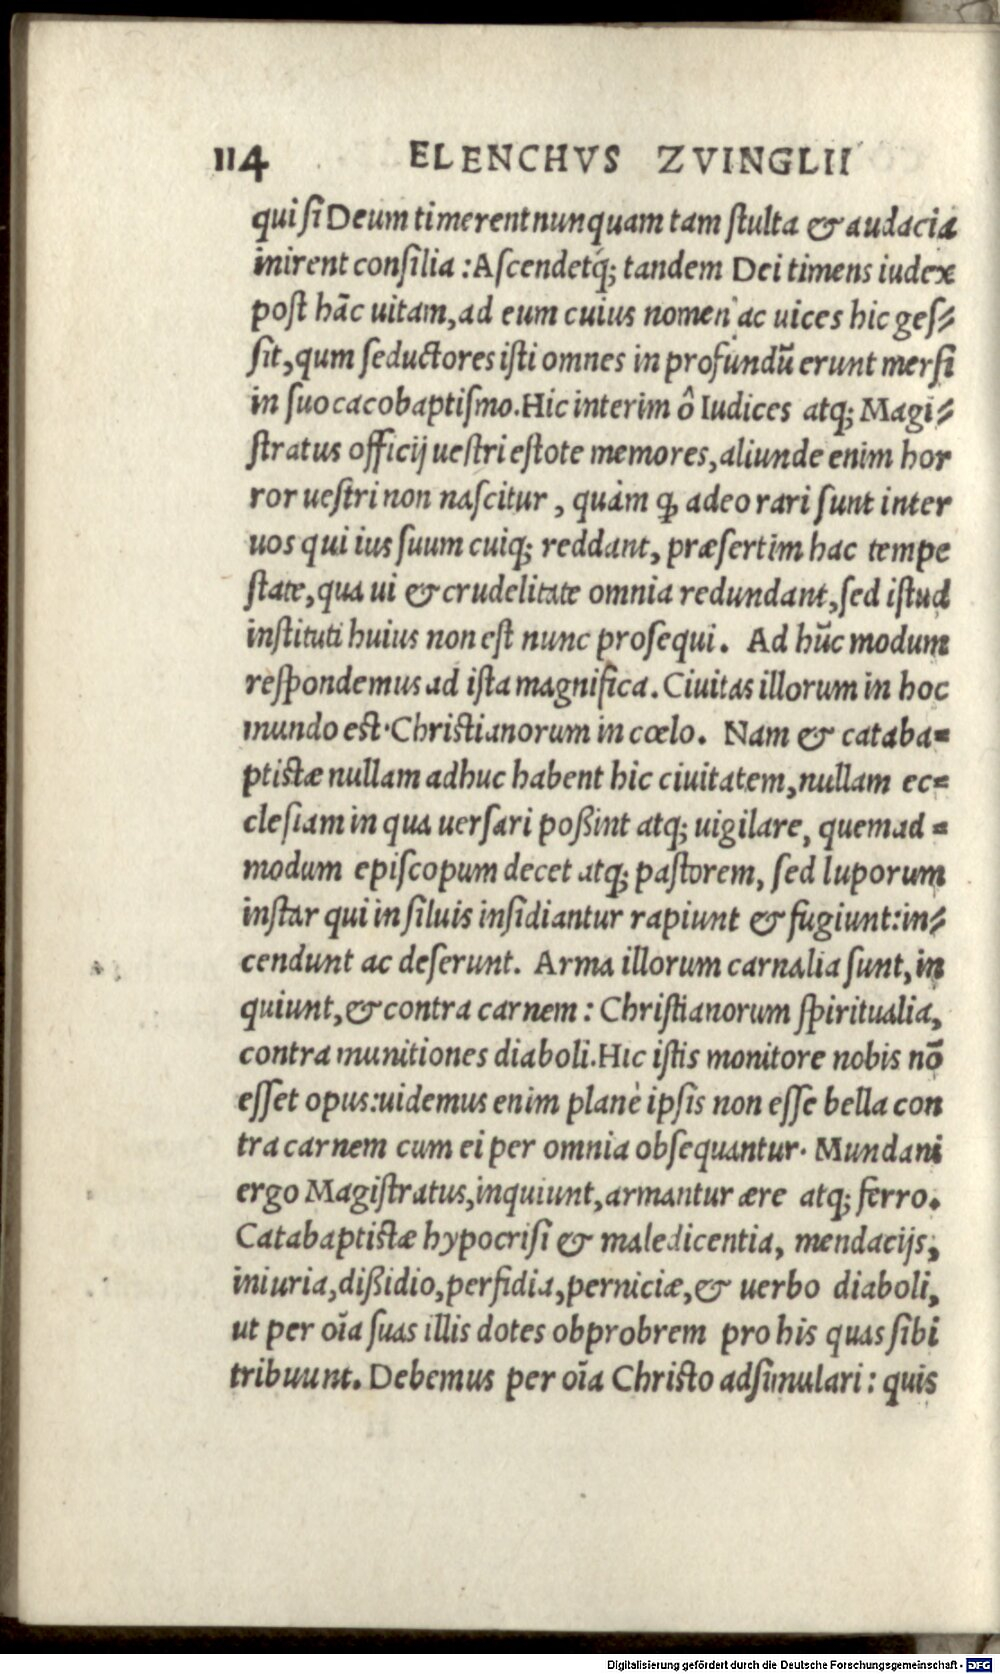 114 ELENCHVS ZVINGLII
qui ſi Deum timerent nunquam tam ſtulta & audacia
inirent conſilia : Aſcendetq́; tandem Dei timens iudex
poſt hāc uitam, ad eum cuius nomen ac uices hic geſ⸗
ſit, qum ſeductores iſti omnes in profundū erunt merſi
in ſuo cacobaptiſmo. Hic interim ô Iudices atq; Magi⸗
ſtratus officij ueſtri eſtote memores, aliunde enim hor
ror ueſtri non naſcitur , quàm ꝙ adeo rari ſunt inter
uos qui ius ſuum cuiq; reddant, præſertim hac tempe
ſtate, qua ui & crudelitate omnia redundant, ſed iſtud
inſtituti huius non eſt nunc proſequi. Ad hūc modum
reſpondemus ad iſta magnifica. Ciuitas illorum in hoc
mundo est· Chriſtianorum in cœlo. Nam & cataba⸗
ptistæ nullam adhuc habent hic ciuitatem, nullam ec⸗
cleſiam in qua uerſari poßint atq; uigilare, quemad⸗
modum epiſcopum decet atq; paſtorem, ſed luporum
inſtar qui in ſiluis inſidiantur rapiunt & fugiunt: in⸗
cendunt ac deſerunt. Arma illorum carnalia ſunt, in
quiunt, & contra carnem : Chriſtianorum ſpiritualia,
contra munitiones diaboli. Hic iſtis monitore nobis nō
eſſet opus: uidemus enim planè ipſis non eſſe bella con
tra carnem cum ei per omnia obſequantur· Mundani
ergo Magiſtratus, inquiunt, armantur ære atq; ferro.
Catabaptistæ hypocriſi & maledicentia, mendacijs,
iniuria, dißidio, perfidia, perniciæ, & uerbo diaboli,
ut per oīa ſuas illis dotes obprobrem pro his quas ſibi
tribuunt. Debemus per oīa Christo adſimulari : quis
Digitalisierung gefördert durch die Deutsche Forschungsgemeinschaft - DFG